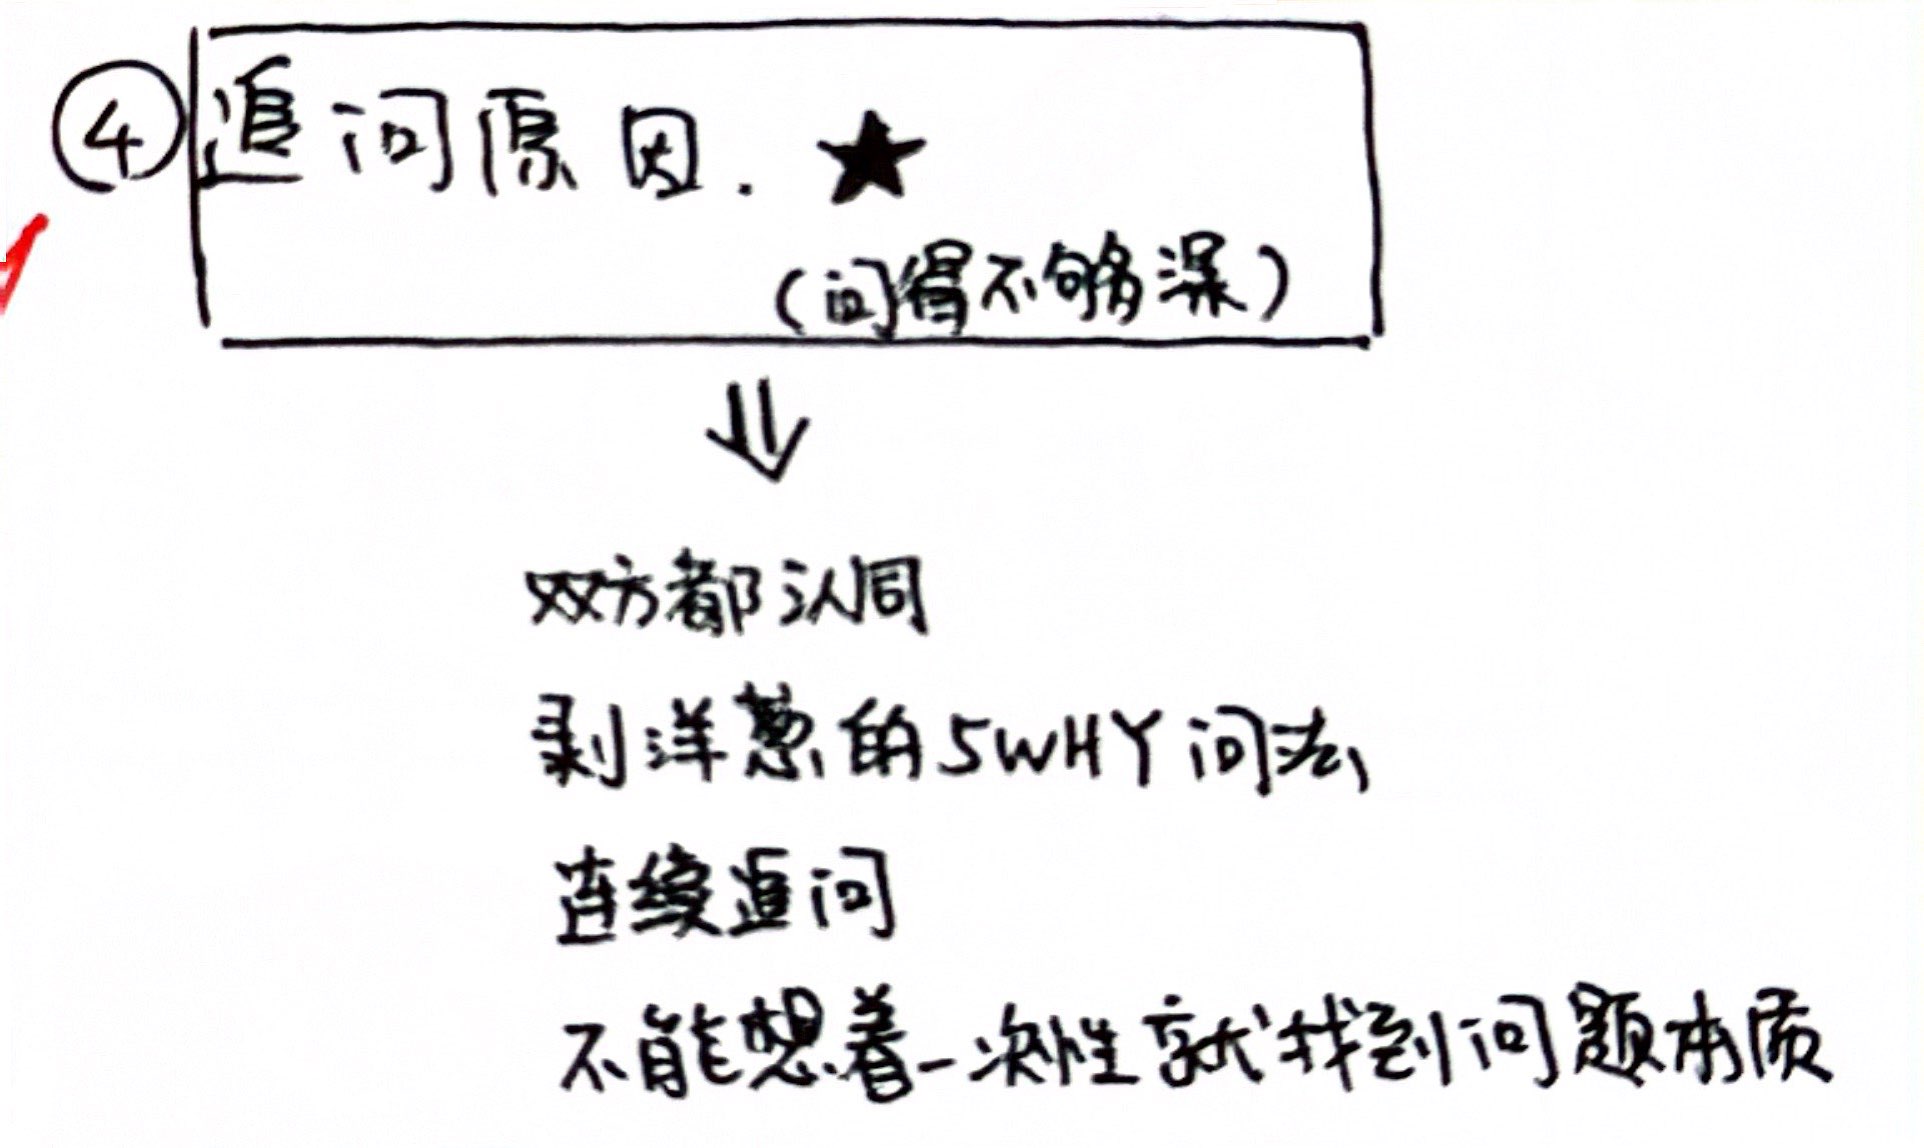 ④ 追问原因. ★
(问得不够深)
⇓
双方都认同
剥洋葱的5WHY问法
连续追问
不能想着一次性就找到问题本质